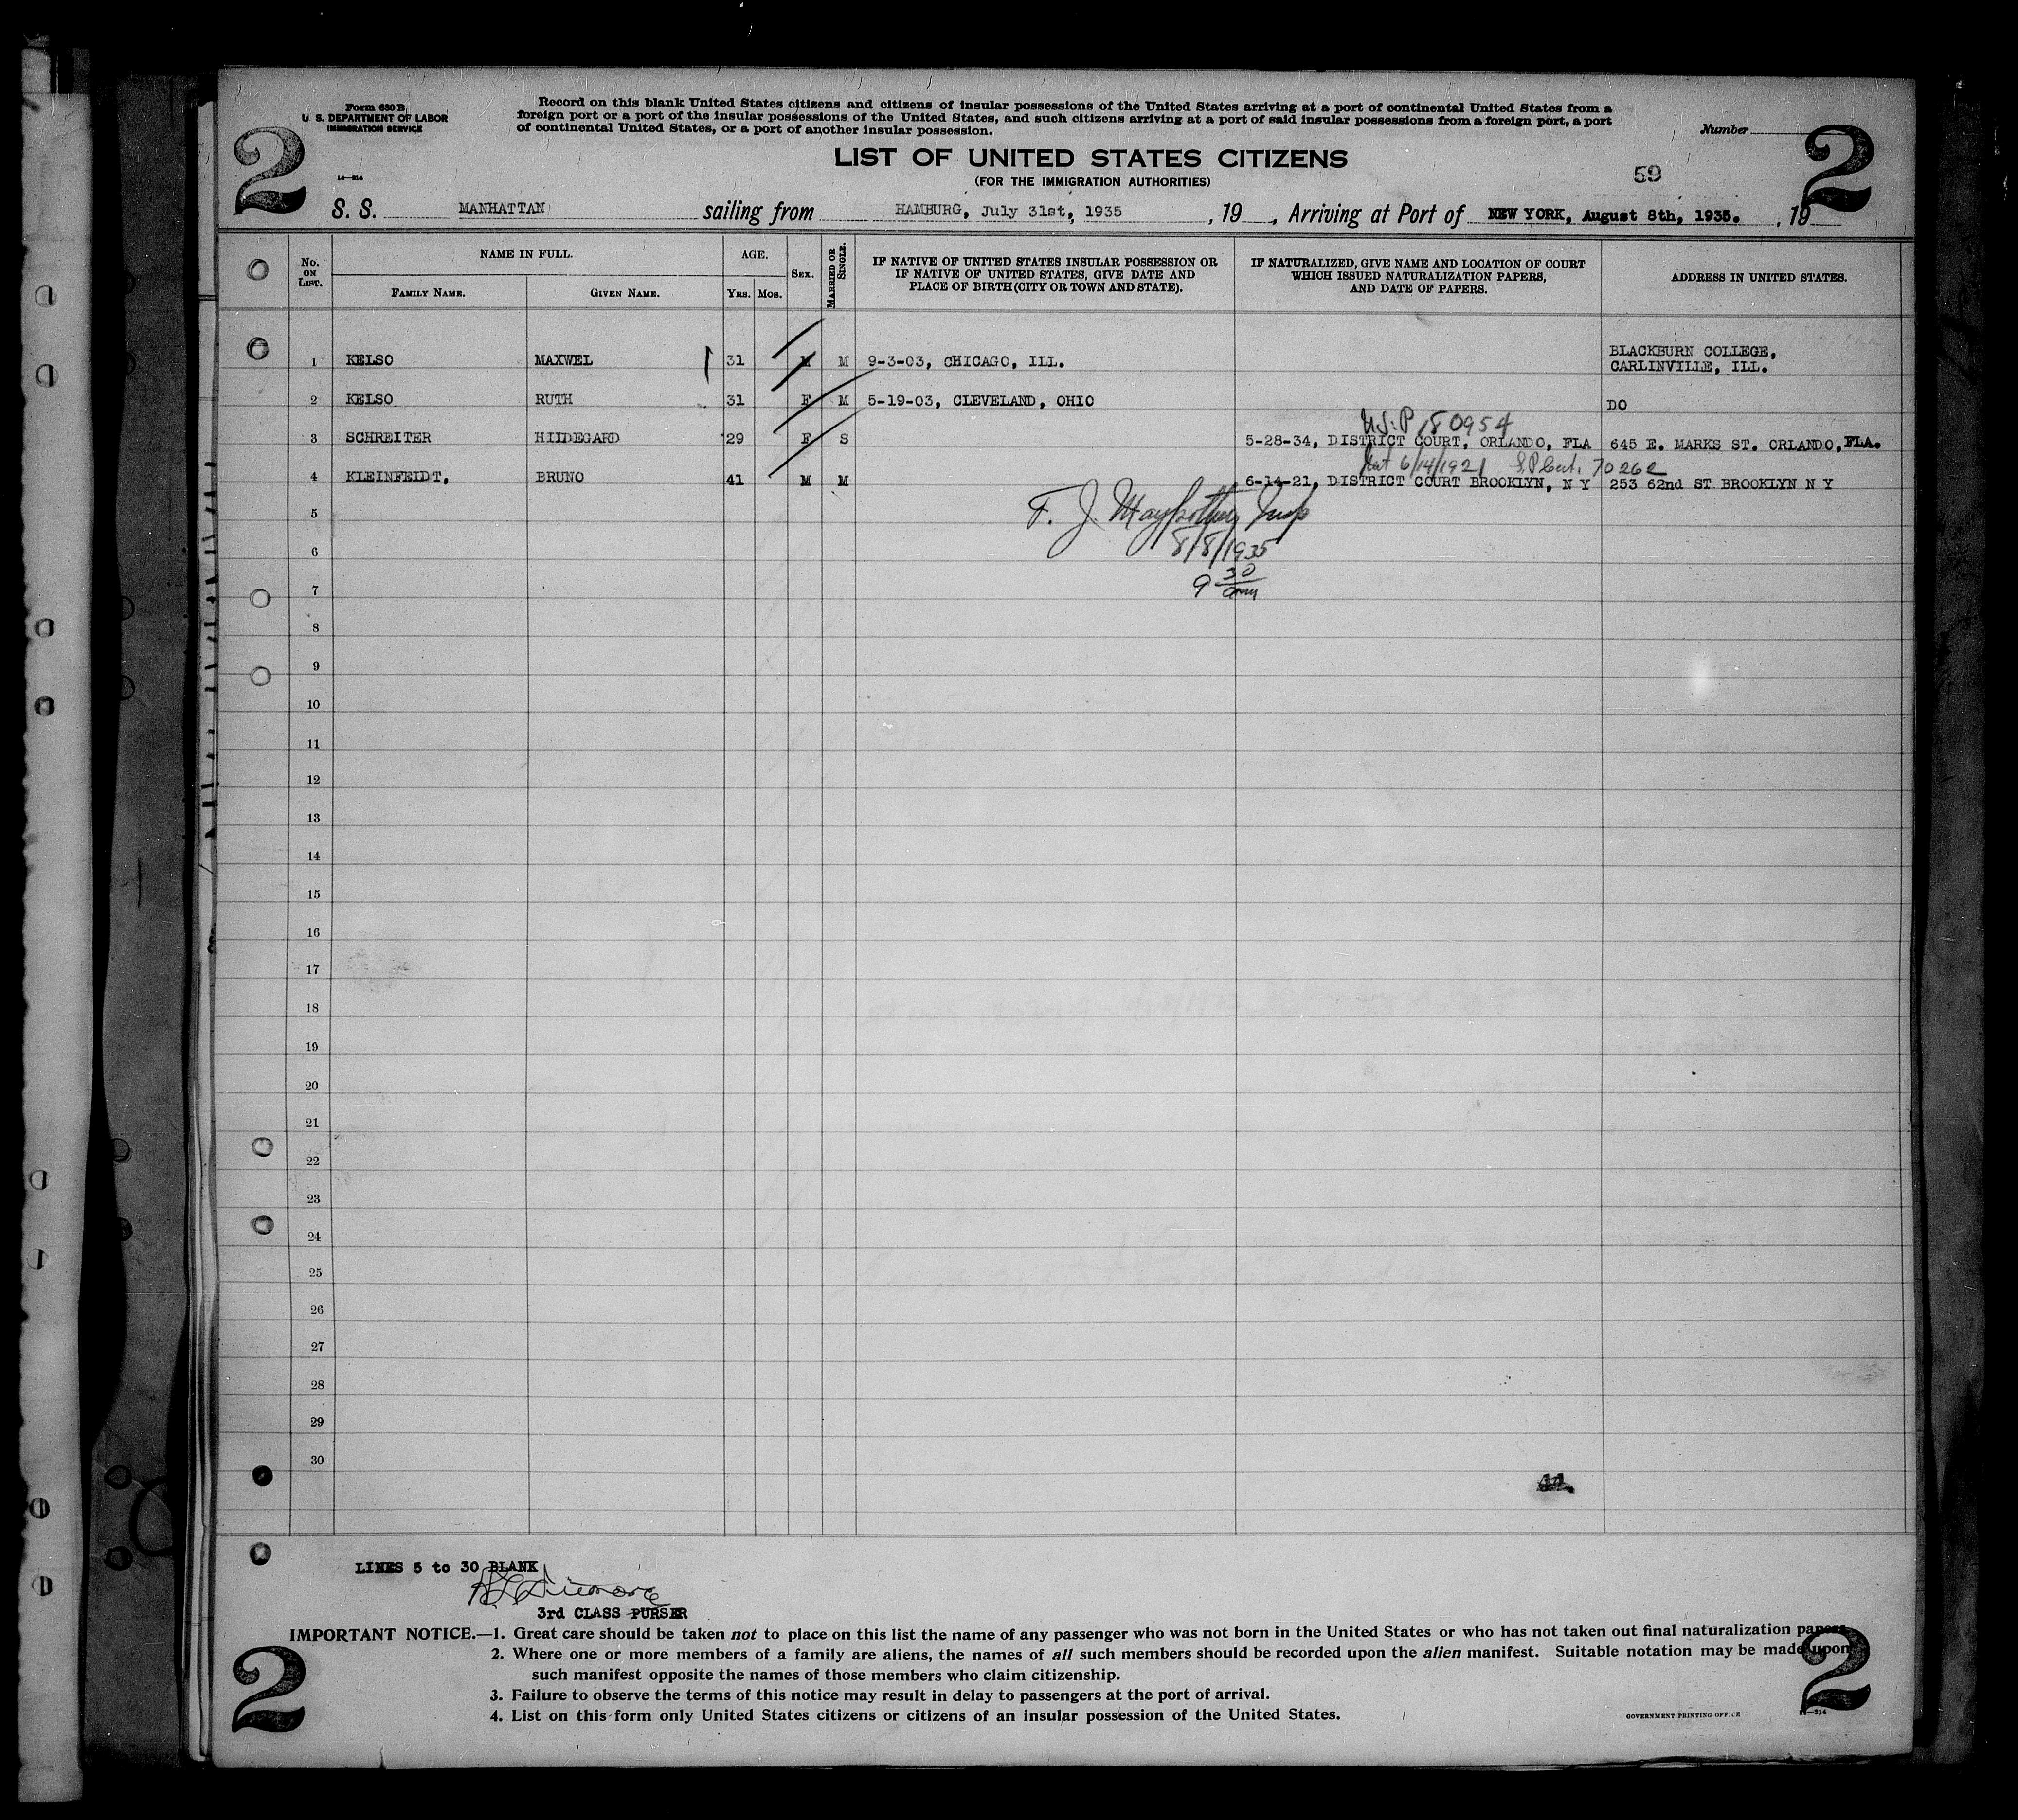 Form 630 B
U. S. DEPARTMENT OF LABOR
IMMIGRATION SERVICE
14—314
Record on this blank United States citizens and citizens of insular possessions of the United States arriving at a port of continental United States from a
foreign port or a port of the insular possessions of the United States, and such citizens arriving at a port of said insular possessions from a foreign port, a port
of continental United States, or a port of another insular possession.
Number
2
2
LIST OF UNITED STATES CITIZENS
(FOR THE IMMIGRATION AUTHORITIES)
59
S. S. MANHATTAN sailing from HAMBURG, July 31st, 1935, 19 , Arriving at Port of NEW YORK, August 8th, 1935. , 19
No. ON LIST.
NAME IN FULL.
FAMILY NAME.
GIVEN NAME.
AGE.
YRS.
MOS.
SEX.
MARRIED OR SINGLE.
IF NATIVE OF UNITED STATES INSULAR POSSESSION OR
IF NATIVE OF UNITED STATES, GIVE DATE AND
PLACE OF BIRTH (CITY OR TOWN AND STATE).
IF NATURALIZED, GIVE NAME AND LOCATION OF COURT
WHICH ISSUED NATURALIZATION PAPERS,
AND DATE OF PAPERS.
ADDRESS IN UNITED STATES.
1 KELSO MAXWEL 31 M M 9-3-03, CHICAGO, ILL. BLACKBURN COLLEGE,
CARLINVILLE, ILL.
2 KELSO RUTH 31 F M 5-19-03, CLEVELAND, OHIO DO
U.S.P 180954
3 SCHREITER HILDEGARD 29 F S 5-28-34, DISTRICT COURT, ORLANDO, FLA 645 E. MARKS ST. ORLANDO, FLA.
6/14/1921 70262
4 KLEINFEIDT, BRUNO 41 M M 6-14-21, DISTRICT COURT BROOKLYN, N Y 253 62nd ST BROOKLYN N Y
5
F. J. Insp
6
8/8/1935
7
9 30 am
8
9
10
11
12
13
14
15
16
17
18
19
20
21
22
23
24
25
26
27
28
29
30
LINES 5 to 30 BLANK
3rd CLASS PURSER
IMPORTANT NOTICE.—1. Great care should be taken not to place on this list the name of any passenger who was not born in the United States or who has not taken out final naturalization papers.
2. Where one or more members of a family are aliens, the names of all such members should be recorded upon the alien manifest. Suitable notation may be made upon
such manifest opposite the names of those members who claim citizenship.
3. Failure to observe the terms of this notice may result in delay to passengers at the port of arrival.
4. List on this form only United States citizens or citizens of an insular possession of the United States.
GOVERNMENT PRINTING OFFICE
14—314
2
2